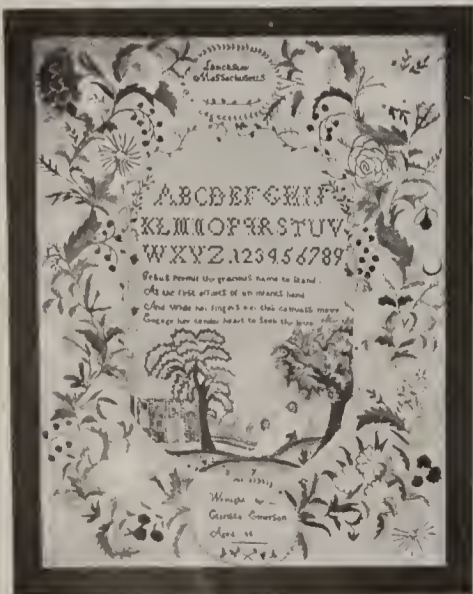 Lancaster
Massachusetts
ABCDEFGHIJ
KLMNOPQRSTUV
WXYZ.123456789
Jesus permit thy gracious name to stand.
As the first efforts of an infants hand
And while her fingers o'er this canvass move
Engage her tender heart to seek thy love
Wrought by
Emerson
Aged